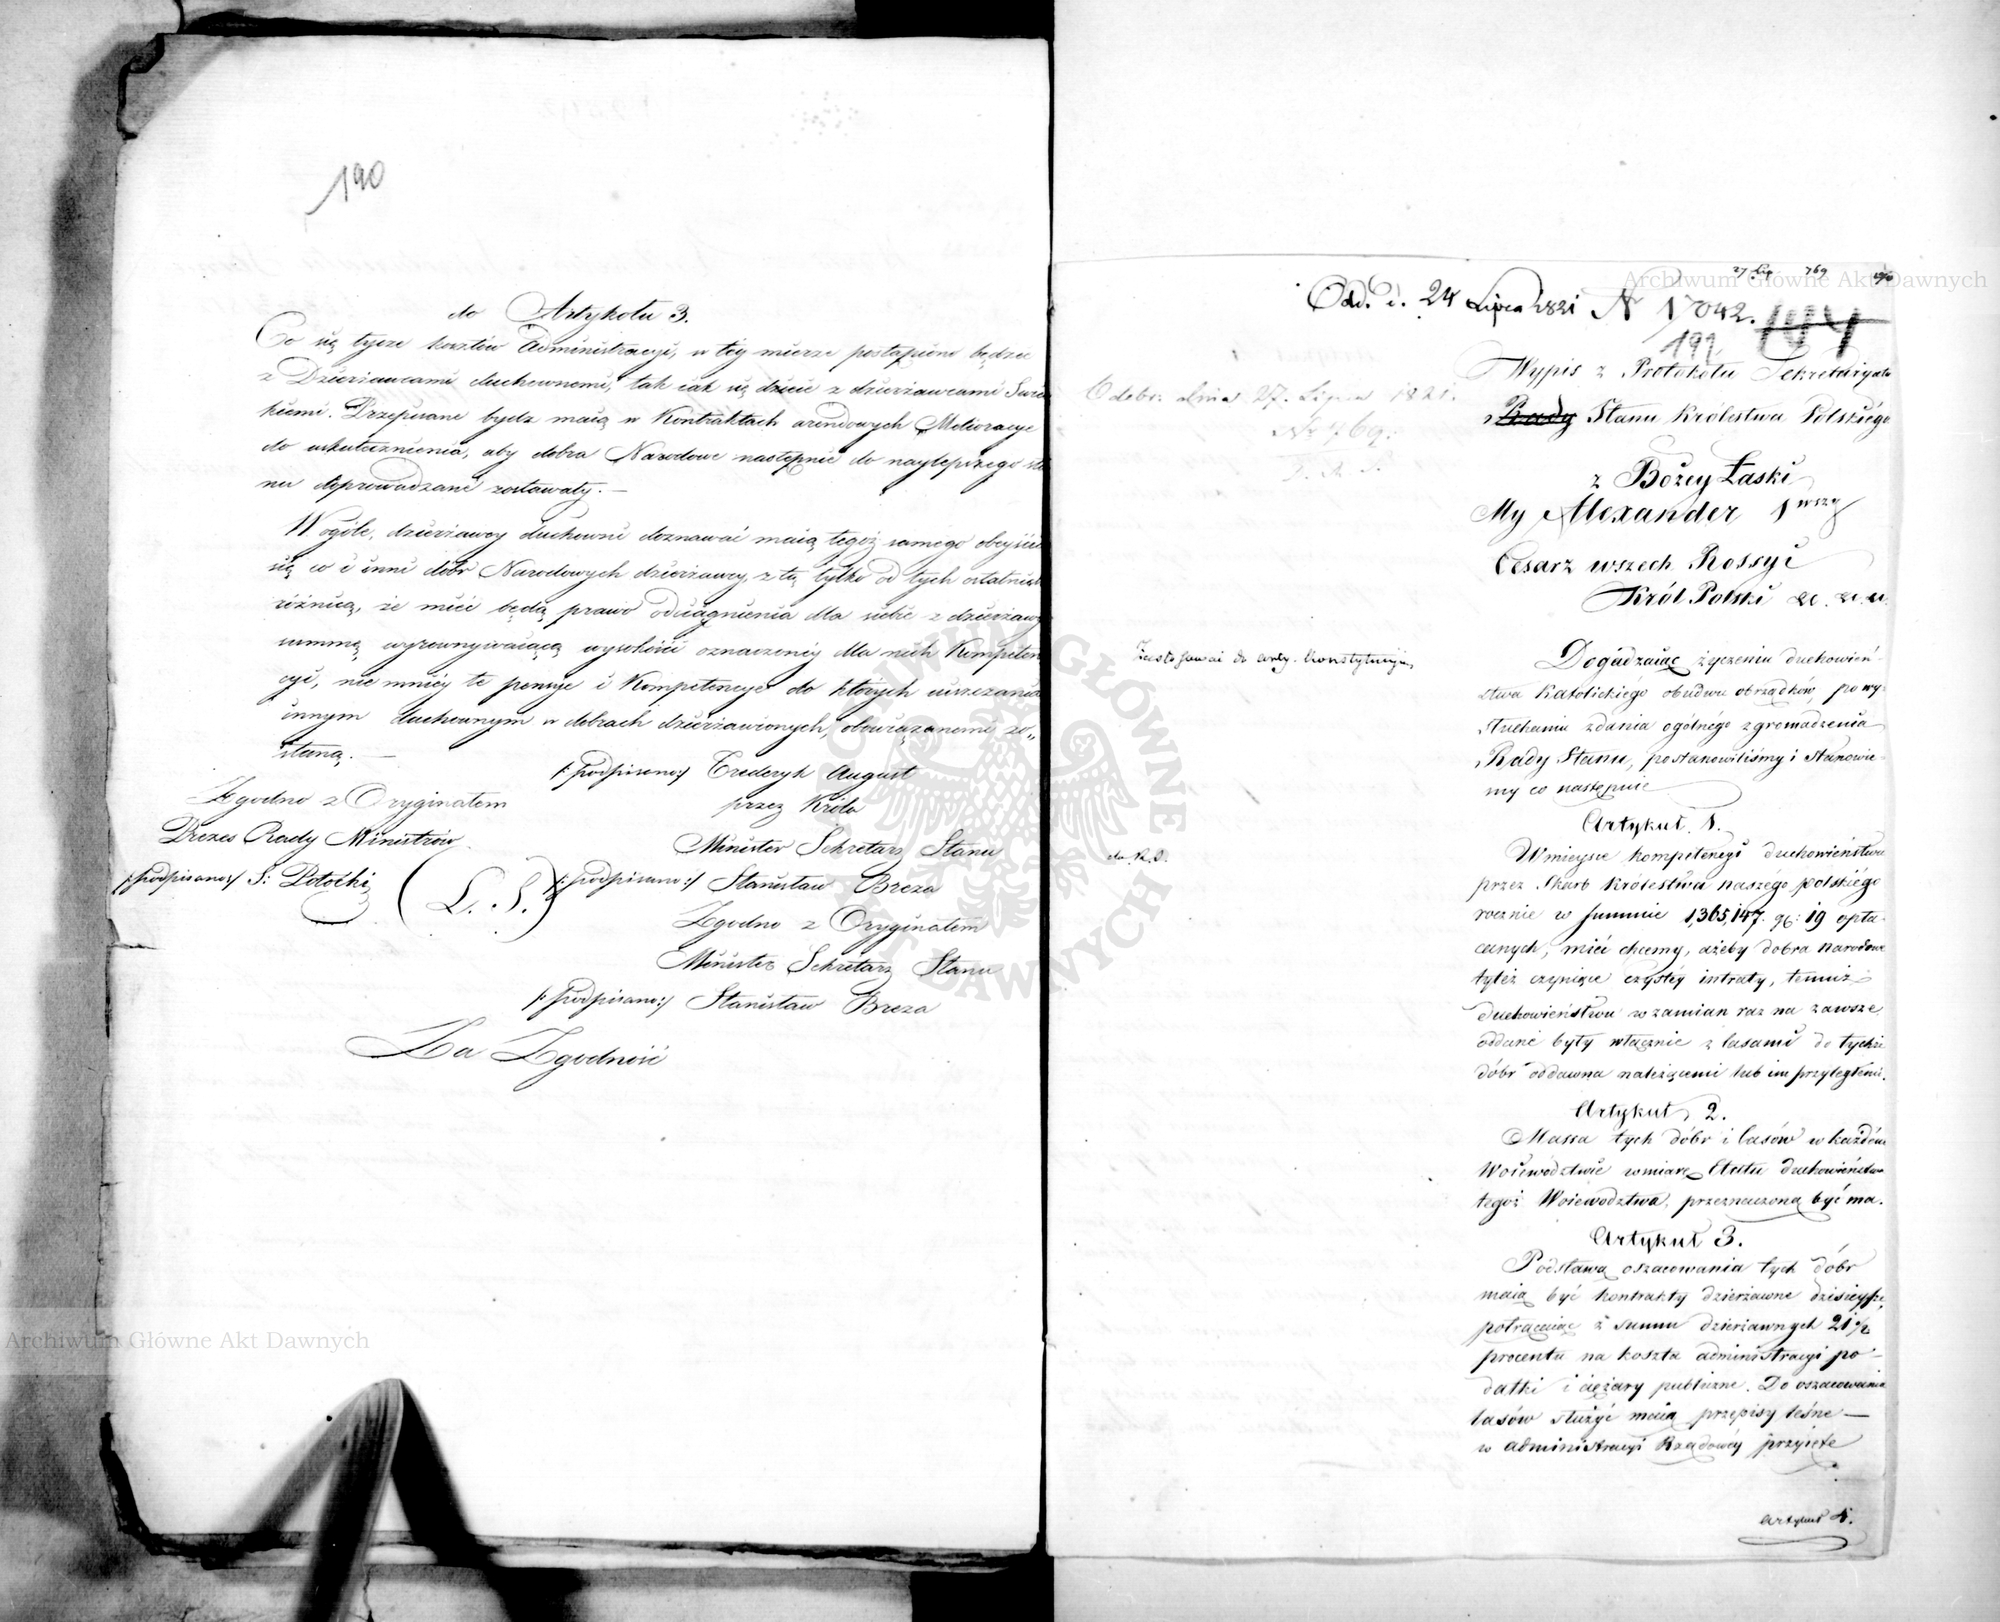 190
do Artykułu 3.
Co się tycze kosztów Administracyi, w tey mierze postąpiono będzie
z Dzierżawcami duchownemi, tak iak się dzieie z dzierżawcami Świec
kiemi. Przepisane bydz maią w Kontraktach arendowych Melioracye
do uskutecznienia, aby dobra Narodowe następnie do naylepszego sta
nu doprowadzane zostawały. —
W ogóle, dzierżawcy duchowni doznawać maią tegoż samego obeyścia
się co i inni dóbr Narodowych dzierżawcy, z tą tylko od tych ostatnich
różnicą, że mieć będą prawo odciągnienia dla siebie z dzierżawy
summę wyrownywaiącą wysokości oznaczoney dla nich Kompeten
cyi, nie mniéy te pensye i Kompetencye do których uiszczania
innym duchownym w dobrach dzierżawionych, obowiązanemi zo„
staną. —
/: podpisano:/ Frederyk August
przez Króla
Minister Sekretarz Stanu
/: podpisano:/ Stanisław Breza
Zgodno z Oryginałem
Minister Sekretarz Stanu
/: podpisano:/ Stanisław Breza
Zgodno z Oryginałem
Prezes Rady Ministrów
/: podpisano:/ S: Potocki
(L. S.)
Za Zgodność
27 Lip 769
Odd. d. 24 Lipca 1821 N 17042.
144
191
Odebr: dnia 27. Lipca 1821.
No 769.
Wypis z Protokołu Sekretaryatu
Rady Stanu Królestwa Polskiégo
z Bożey Łaski
My Alexander 1wszy
Cesarz wszech Rossyi
Król Polski &c. &c. &c.
Zastosować do arty. Konstytucyi
Dogadzaiąc życzeniu duchowień-
stwa Katolickiégo obudwu obrządków, po wy-
słuchaniu zdania ogólnégo zgromadzenia
Rady Stanu, postanowiliśmy i stanowie-
my co następnie
Artykuł 1.
do R. S.
W mieysce kompetencyi duchowieństwu
przez Skarb Królestwa naszégo polskiégo
rocznie w summie 1,365,147. gr: 19 opła-
canych, mieć chcemy, ażeby dobra narodowe
tyleż czyniące czystéy intraty, temuż
duchowieństwu w zamian raz na zawsze
oddane były włącznie z lasami do tychże
dóbr oddawna należącemi lub im przyległemi.
Artykuł 2.
Massa tych dóbr i lasów w każdém
Woiewództwie w miarę Etatu duchowieństwa
tegoż Woiewodztwa, przeznaczoną być ma.
Artykuł 3.
Podstawą oszacowania tych dóbr
maią być kontrakty dzierżawne dzisieysze,
potrącaiąc z summ dzierżawnych 21 1/2
procentu na koszta administracyi po-
datki i ciężary publiczne. Do oszacowania
lasów służyć maią przepisy leśne —
w administracyi Rządowéy przyięte
Artykuł 4.
Archiwum Główne Akt Dawnych
Archiwum Główne Akt Dawnych
ARCHIWUM GŁÓWNE AKT DAWNYCH